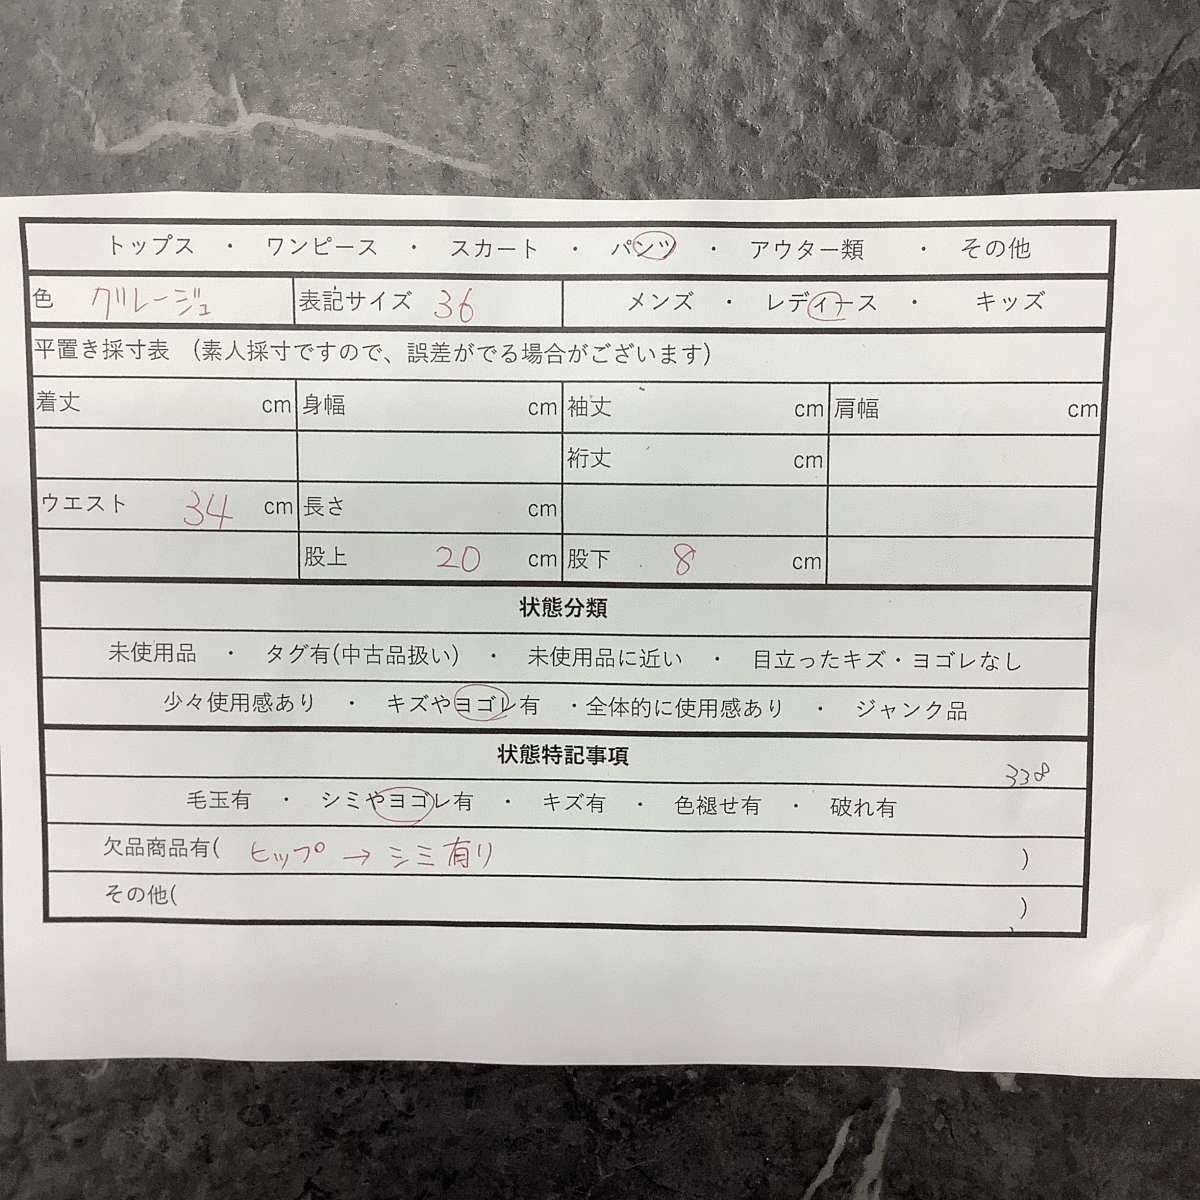 トップス ・ ワンピース ・ スカート ・ パンツ ・ アウター類 ・ その他
色 グレージュ 表記サイズ 36 メンズ ・ レディース ・ キッズ
平置き採寸表 （素人採寸ですので、誤差がでる場合がございます）
着丈 cm 身幅 cm 袖丈 cm 肩幅 cm
裄丈 cm
ウエスト 34 cm 長さ cm
股上 20 cm 股下 8 cm
状態分類
未使用品 ・ タグ有(中古品扱い) ・ 未使用品に近い ・ 目立ったキズ・ヨゴレなし
少々使用感あり ・ キズやヨゴレ有 ・全体的に使用感あり ・ ジャンク品
状態特記事項
338
毛玉有 ・ シミやヨゴレ有 ・ キズ有 ・ 色褪せ有 ・ 破れ有
欠品商品有( ヒップ → シミ有り )
その他( )